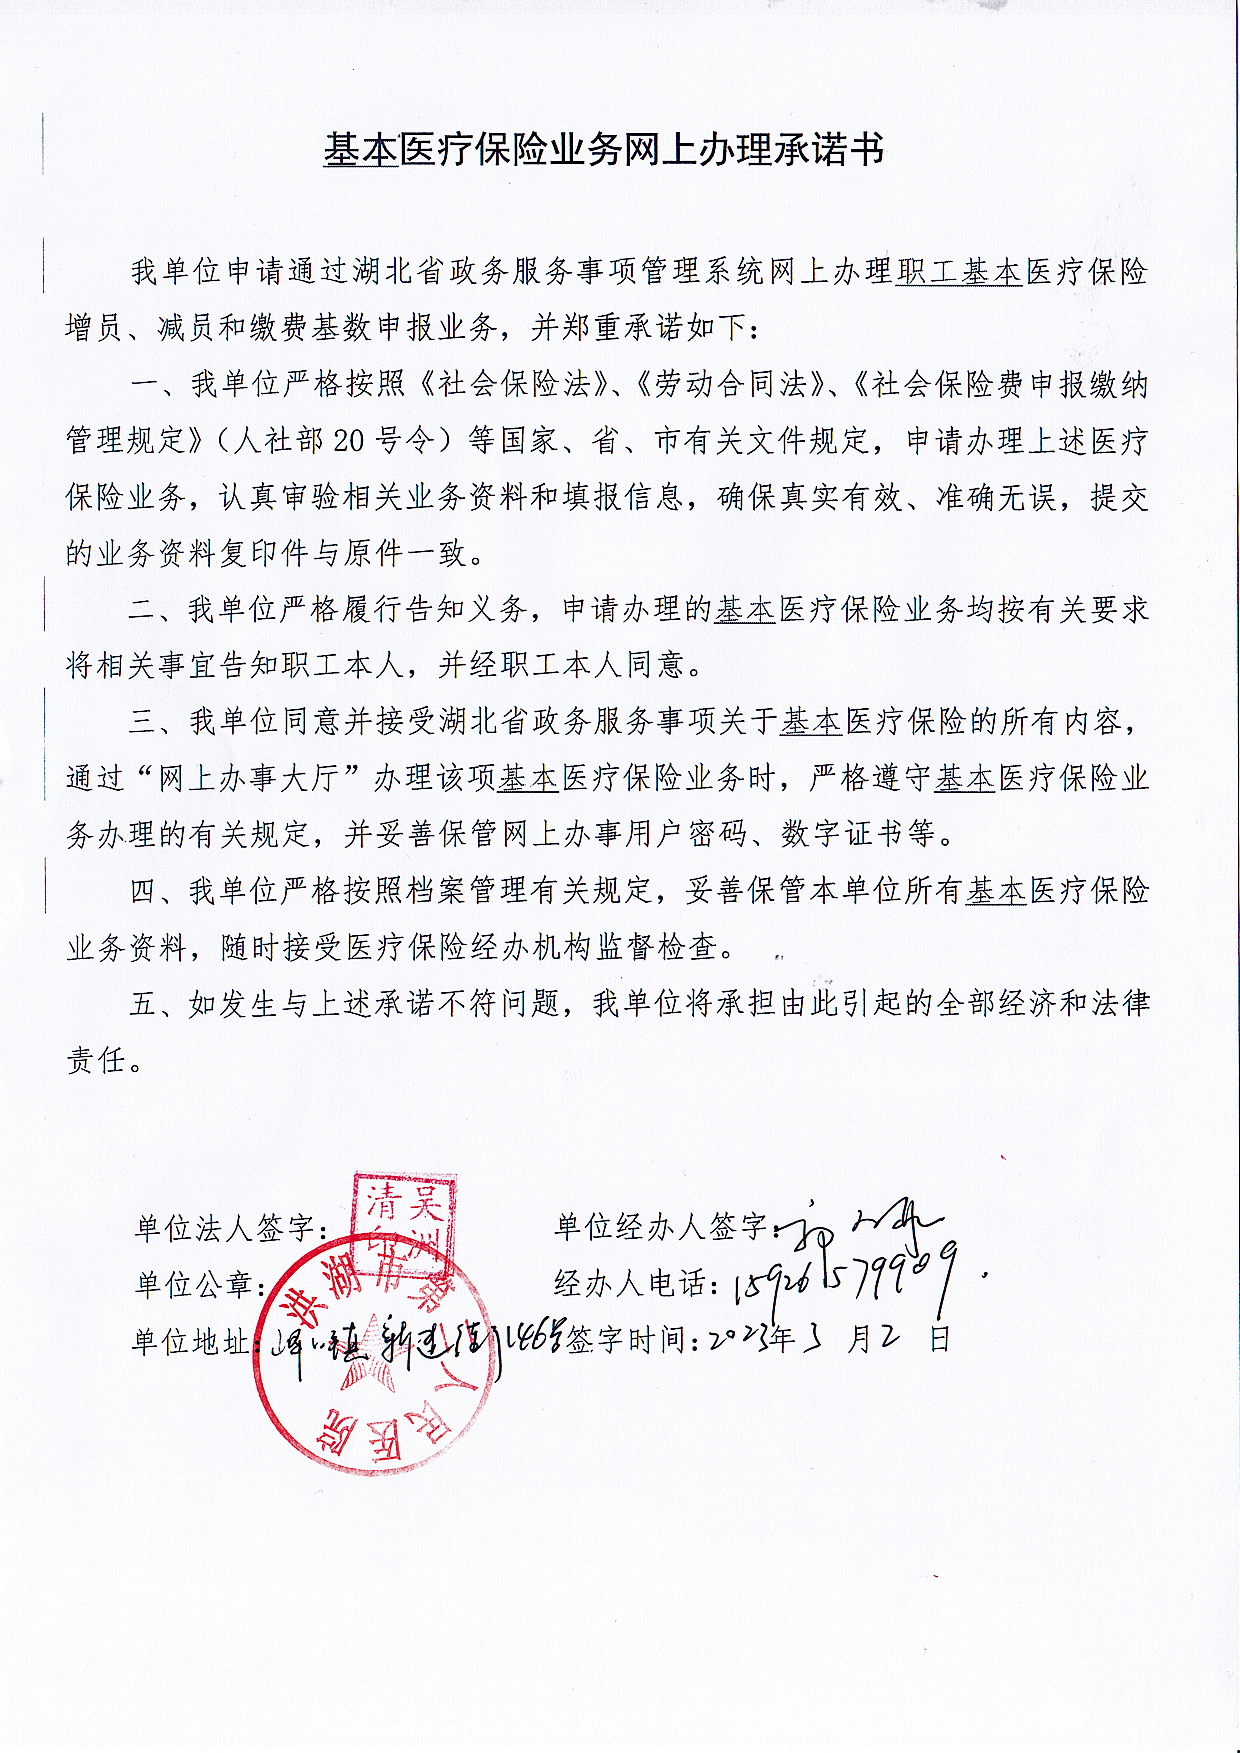 基本医疗保险业务网上办理承诺书
我单位申请通过湖北省政务服务事项管理系统网上办理职工基本医疗保险
增员、减员和缴费基数申报业务，并郑重承诺如下：
一、我单位严格按照《社会保险法》、《劳动合同法》、《社会保险费申报缴纳
管理规定》（人社部 20 号令）等国家、省、市有关文件规定，申请办理上述医疗
保险业务，认真审验相关业务资料和填报信息，确保真实有效、准确无误，提交
的业务资料复印件与原件一致。
二、我单位严格履行告知义务，申请办理的基本医疗保险业务均按有关要求
将相关事宜告知职工本人，并经职工本人同意。
三、我单位同意并接受湖北省政务服务事项关于基本医疗保险的所有内容，
通过“网上办事大厅”办理该项基本医疗保险业务时，严格遵守基本医疗保险业
务办理的有关规定，并妥善保管网上办事用户密码、数字证书等。
四、我单位严格按照档案管理有关规定，妥善保管本单位所有基本医疗保险
业务资料，随时接受医疗保险经办机构监督检查。
五、如发生与上述承诺不符问题，我单位将承担由此引起的全部经济和法律
责任。
单位法人签字： 吴洲清印 单位经办人签字：
单位公章： 经办人电话：15926579909
洪湖市第人民医院
单位地址： 镇新建街146号 签字时间：2023年3月2日